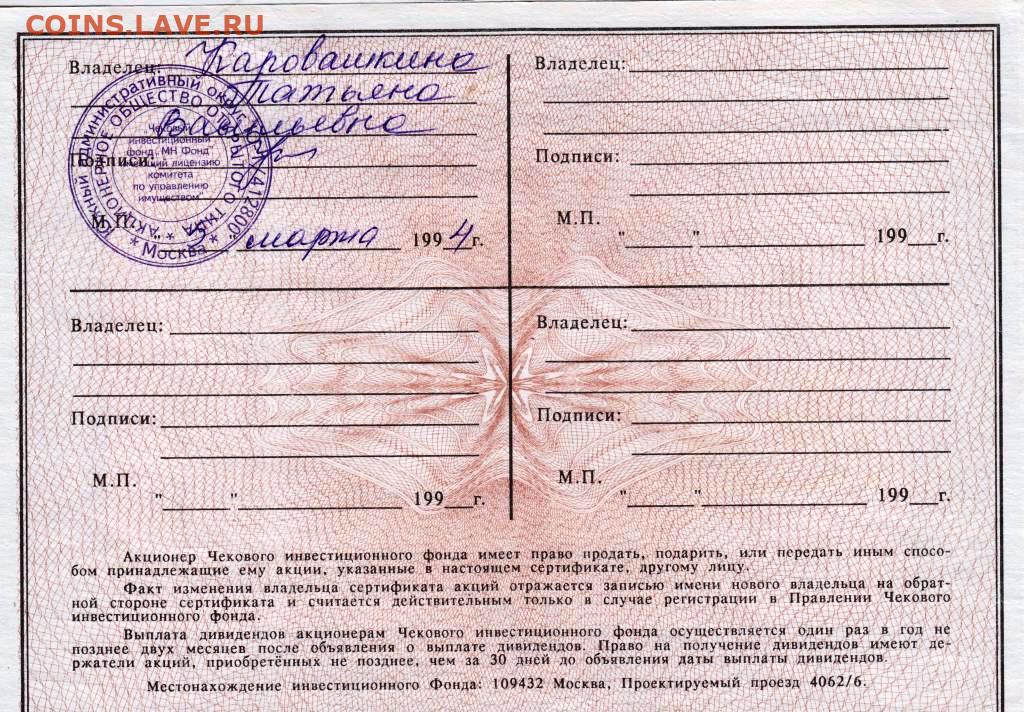 COINS.LAVE.RU
Владелец: Каровашкина
Татьяна
Васильевна
Подписи:
М.П.
"5" марта 1994г.
Южный административный округ
412800
* Москва *
Акционерное общество открытого типа
"Чековый
инвестиционный
фонд "МН Фонд"
имеющий лицензию
комитета
по управлению
имуществом"
Владелец:
Подписи:
М.П.
"___"___ 199__г.
Владелец:
Подписи:
М.П.
"___"___ 199__г.
Владелец:
Подписи:
М.П.
"___"___ 199__г.
Акционер Чекового инвестиционного фонда имеет право продать, подарить, или передать иным спосо-
бом принадлежащие ему акции, указанные в настоящем сертификате, другому лицу.
Факт изменения владельца сертификата акций отражается записью имени нового владельца на обрат-
ной стороне сертификата и считается действительным только в случае регистрации в Правлении Чекового
инвестиционного фонда.
Выплата дивидендов акционерам Чекового инвестиционного фонда осуществляется один раз в год не
позднее двух месяцев после объявления о выплате дивидендов. Право на получение дивидендов имеют де-
ржатели акций, приобретённых не позднее, чем за 30 дней до объявления даты выплаты дивидендов.
Местонахождение инвестиционного Фонда: 109432 Москва, Проектируемый проезд 4062/6.